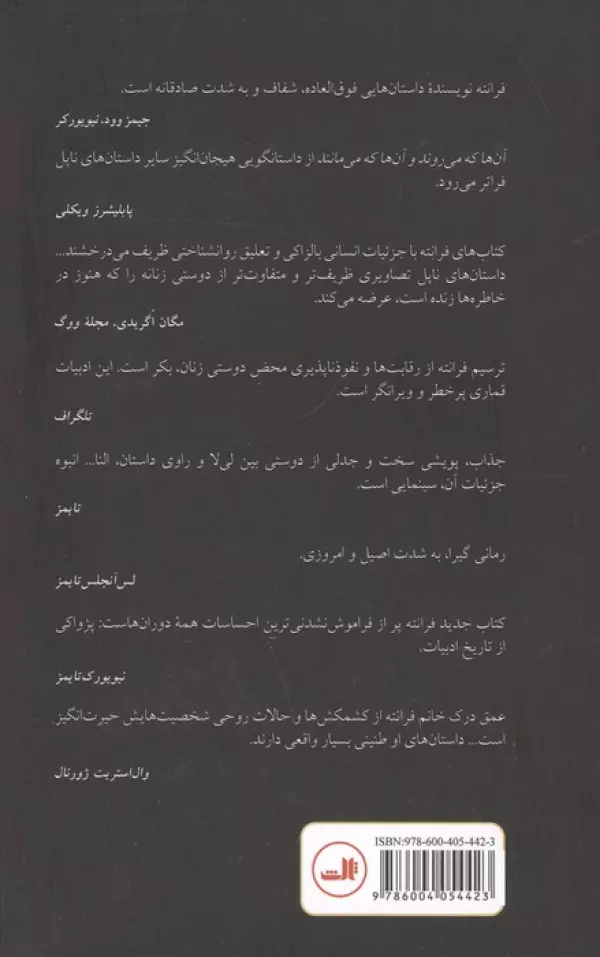 فرانته نویسندهٔ داستان‌هایی فوق‌العاده، شفاف و به شدت صادقانه است.
جیمز وود، نیویورکر
آن‌ها که می‌روند و آن‌ها که می‌مانند از داستانگویی هیجان‌انگیز سایر داستان‌های ناپل
فراتر می‌رود.
پابلیشرز ویکلی
کتاب‌های فرانته با جزئیات انسانی بالزاکی و تعلیق روانشناختی ظریف می‌درخشند...
داستان‌های ناپل تصاویری ظریف‌تر و متفاوت‌تر از دوستی زنانه را که هنوز در
خاطره‌ها زنده است، عرضه می‌کند.
مگان اُگریدی، مجلهٔ ووگ
ترسیم فرانته از رقابت‌ها و نفوذناپذیری محضِ دوستی زنان، بکر است. این ادبیات
قماری پرخطر و ویرانگر است.
تلگراف
جذاب، پویشی سخت و جدلی از دوستی بین لی‌لا و راوی داستان، النا... انبوه
جزئیات آن، سینمایی است.
تایمز
رمانی گیرا، به شدت اصیل و امروزی.
لس‌آنجلس تایمز
کتاب جدید فرانته پر از فراموش‌نشدنی‌ترین احساسات همهٔ دوران‌هاست: پژواکی
از تاریخ ادبیات.
نیویورک تایمز
عمق درک خانم فرانته از کشمکش‌ها و حالات روحی شخصیت‌هایش حیرت‌انگیز
است... داستان‌های او طنینی بسیار واقعی دارند.
وال‌استریت ژورنال
ISBN:978-600-405-442-3
ثالث
9 786004 054423